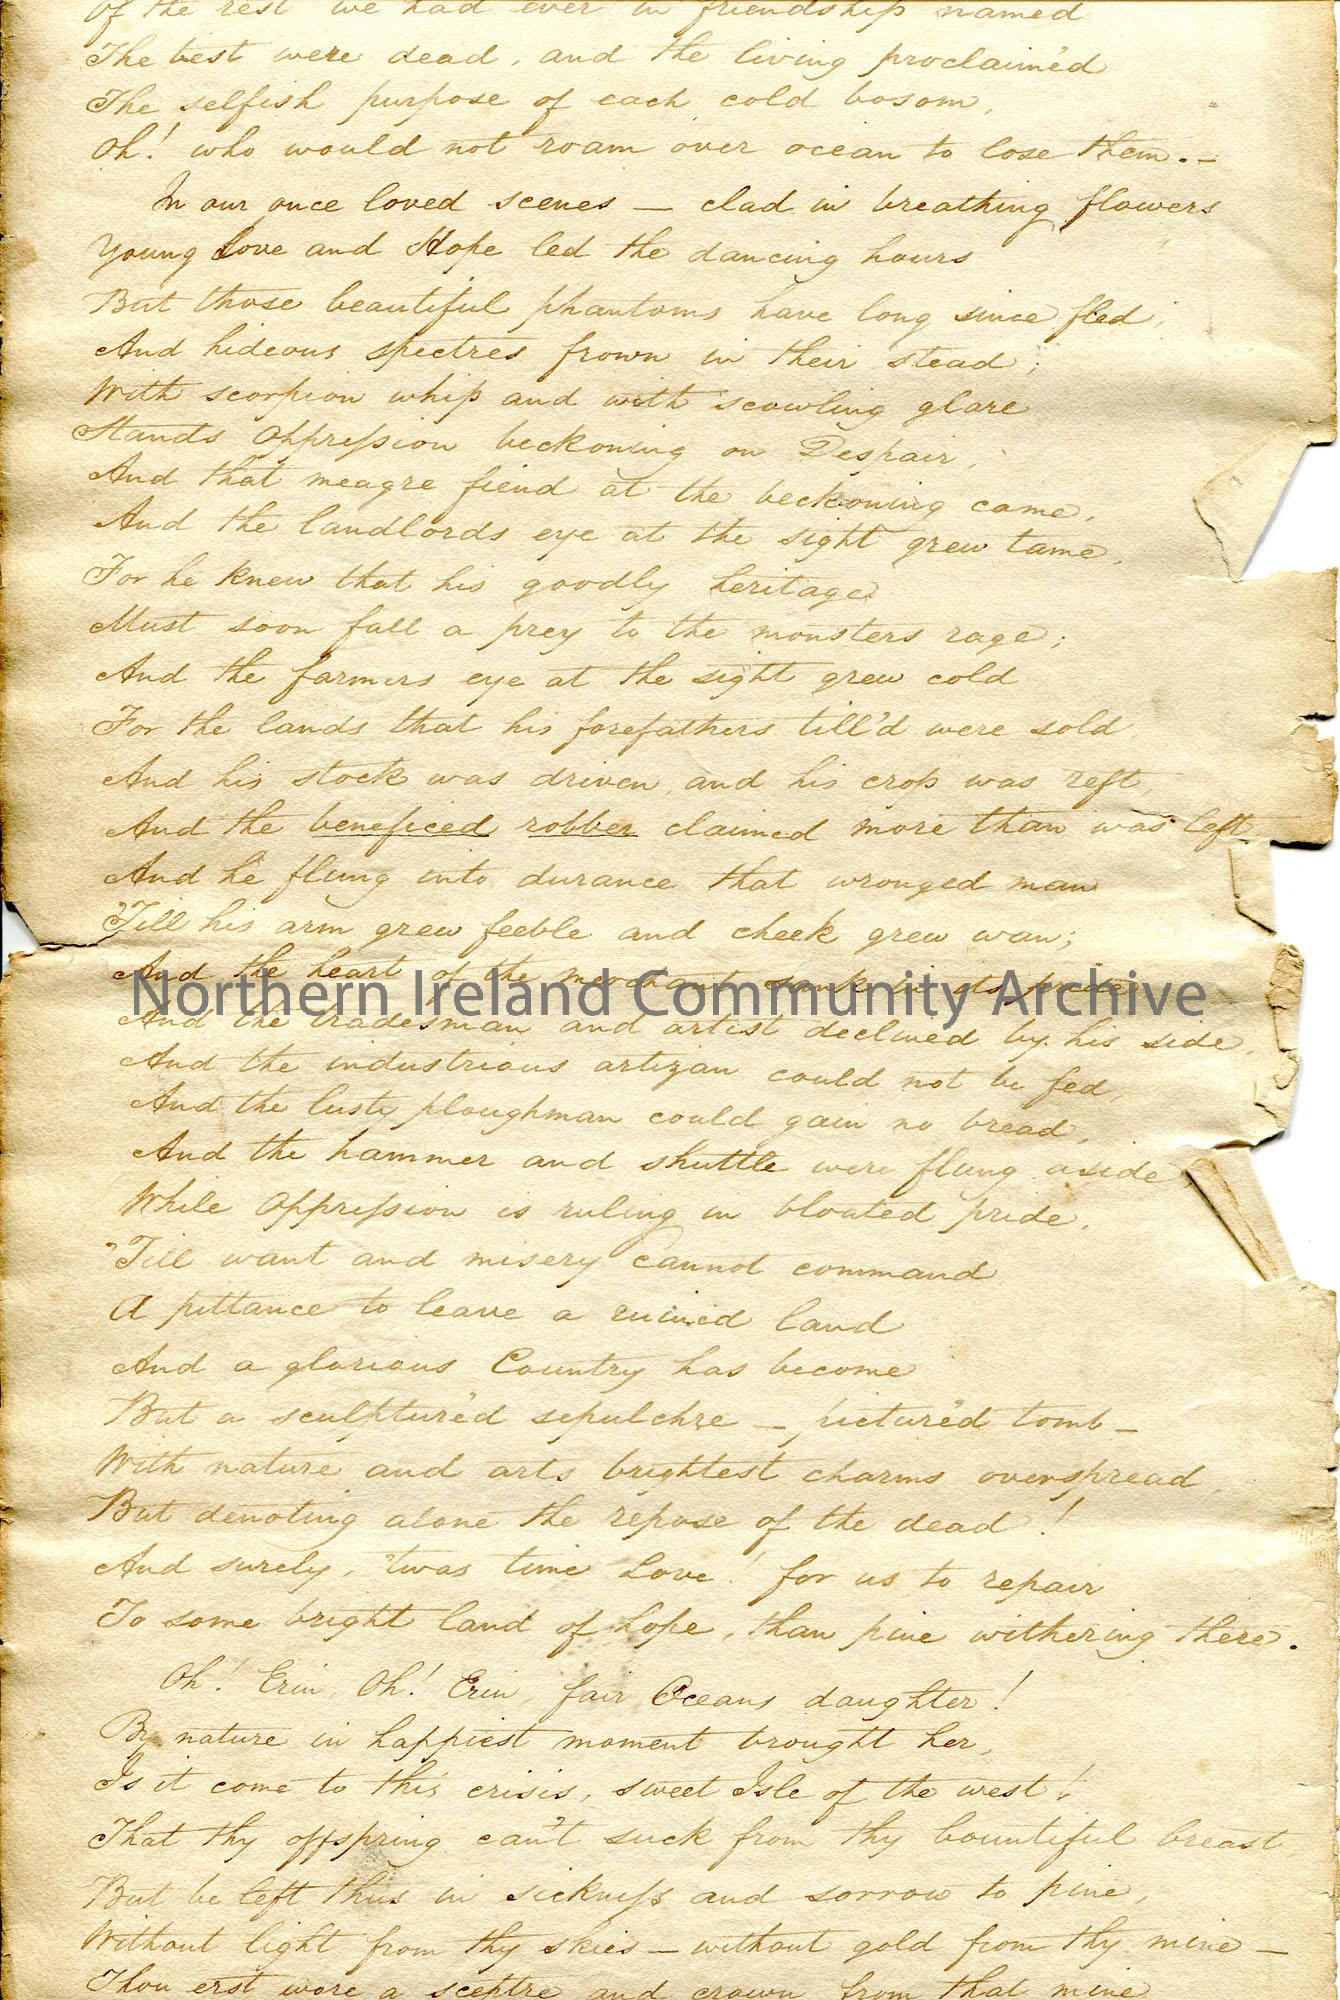 Of the rest we had ever in friendship named
The best were dead, and the living proclaim'd
The selfish purpose of each cold bosom,
Oh! who would not roam over ocean to lose them. —
In our once loved scenes — clad in breathing flowers
Young Love and Hope led the dancing hours
But those beautiful phantoms have long since fled,
And hideous spectres frown in their stead;
With scorpion whip and with scowling glare
Stands Oppression beckoning on Despair,
And that meagre fiend at the beckoning came,
And the landlords eye at the sight grew tame,
For he knew that his goodly heritage
Must soon fall a prey to the monsters rage;
And the farmers eye at the sight grew cold
For the lands that his forefathers till'd were sold,
And his stock was driven, and his crop was reft,
And the beneficed robber claimed more than was left,
And he flung into durance that wronged man
'Till his arm grew feeble and cheek grew wan;
And the heart of the merchant sunk in its pride
Northern Ireland Community Archive
And the tradesman and artist declined by his side,
And the industrious artizan could not be fed,
And the lusty ploughman could gain no bread,
And the hammer and shuttle were flung aside
While Oppression is ruling in bloated pride,
'Till want and misery cannot command
A pittance to leave a ruined land
And a glorious Country has become
But a sculptur'd sepulchre — pictur'd tomb —
With nature and arts brightest charms overspread,
But denoting alone the repose of the dead!
And surely, 'twas time Love! for us to repair
To some bright land of hope, than pine withering there.
Oh! Erin, Oh! Erin, fair Oceans daughter!
By nature in happiest moment brought her,
Is it come to this crisis, sweet Isle of the west!
That thy offspring can't suck from thy bountiful breast,
But be left thus in sickness and sorrow to pine,
Without light from thy skies — without gold from thy mine —
Thou erst wore a sceptre and crown from that mine